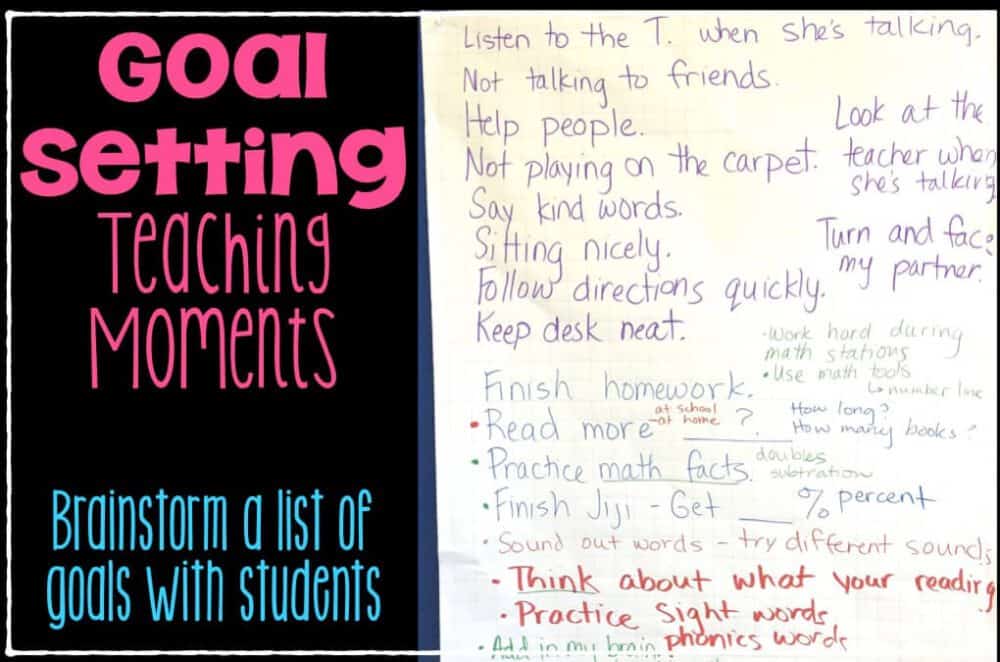 Goal
Setting
Teaching
Moments
Brainstorm a list of
goals with students
Listen to the T. when she's talking.
Not talking to friends.
Help people.
Not playing on the carpet.
Say kind words.
Sitting nicely.
Follow directions quickly.
Keep desk neat.
Look at the
teacher when
she's talking
Turn and face
my partner.
•Work hard during
math stations
•Use math tools
↳ number line
Finish homework.
• Read more at school ? How long?
-at home ____ How many books?
• Practice math facts. doubles
subtration
• Finish Jiji - Get ___ % percent
• Sound out words - try different sounds
• Think about what your reading
• Practice Sight words
phonics words
• Add in my brain